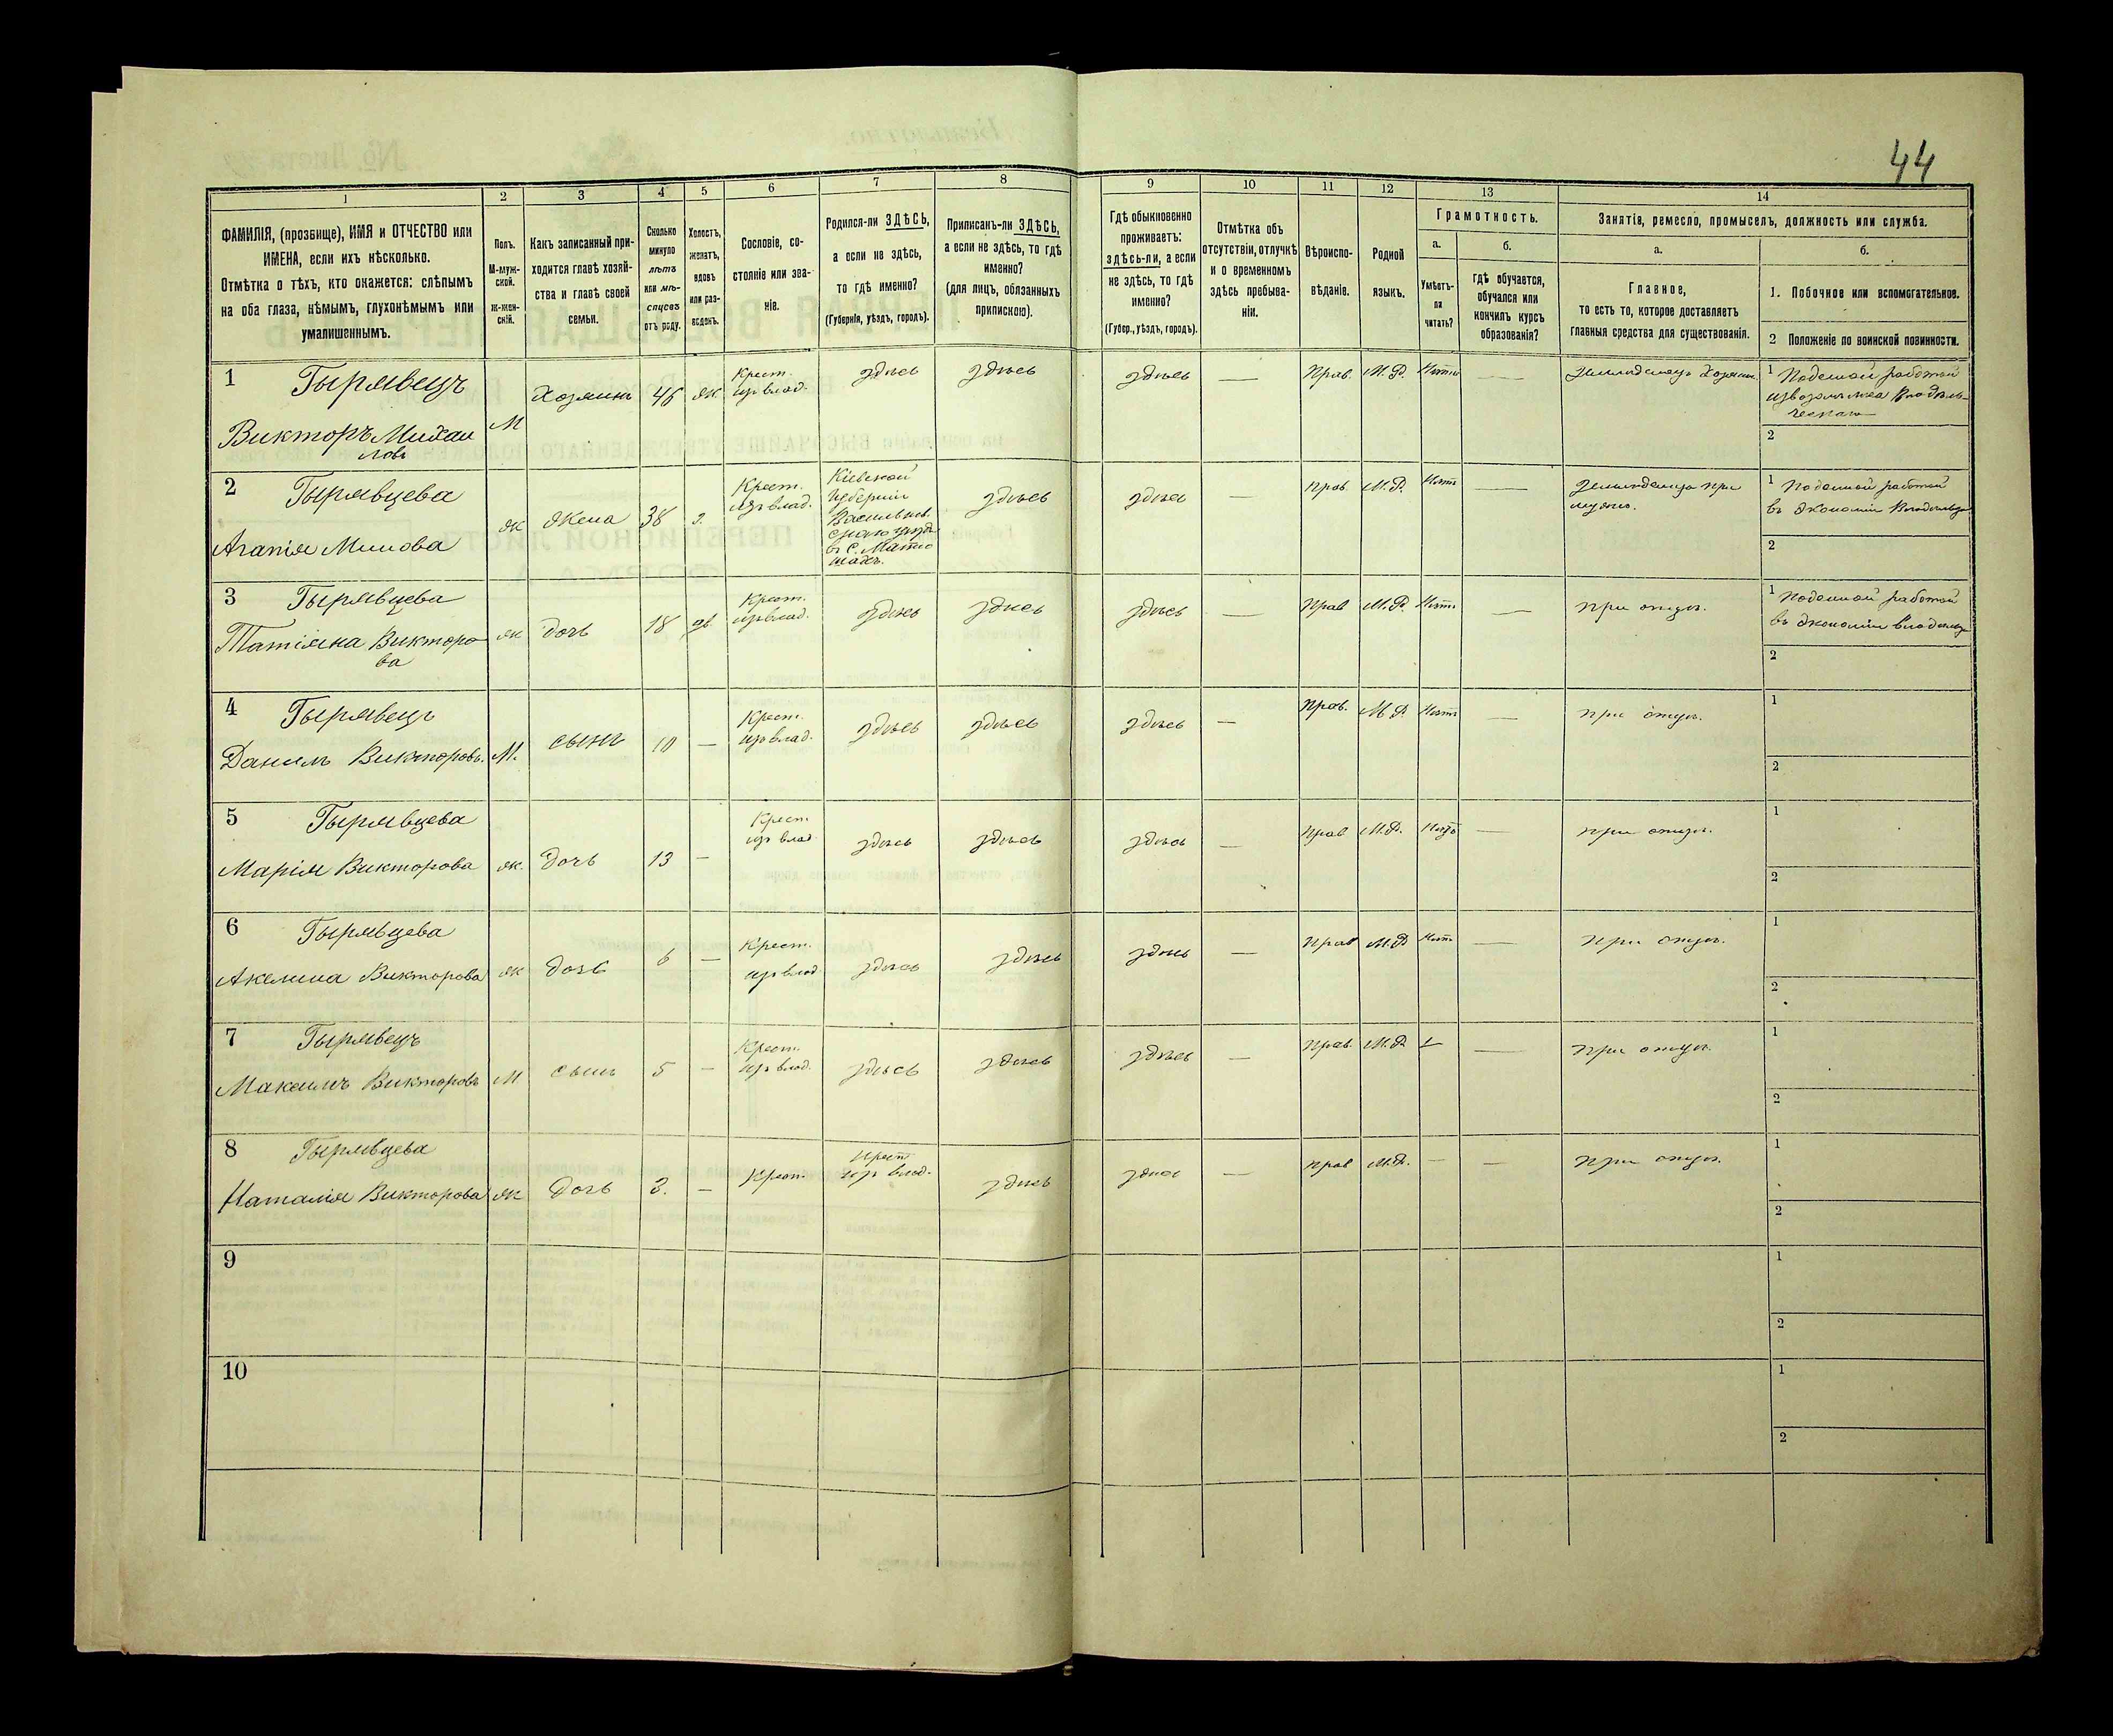 44
1
2
3
4
5
6
7
8
9
10
11
12
13
14
ФАМИЛІЯ, (прозвище), ИМЯ и ОТЧЕСТВО или
ИМЕНА, если ихъ нѣсколько.
Отмѣтка о тѣхъ, кто окажется: слѣпымъ
на оба глаза, нѣмымъ, глухонѣмымъ или
умалишеннымъ.
Полъ.
М-муж-
ской.
Ж-жен-
скій.
Какъ записанный при-
ходится главѣ хозяй-
ства и главѣ своей
семьи.
Сколько
минуло
лѣтъ
или мѣ-
сяцевъ
отъ роду.
Холостъ,
женатъ,
вдовъ
или раз-
веденъ.
Сословіе, со-
стояніе или зва-
ніе.
Родился-ли ЗДѢСЬ,
а если не здѣсь,
то гдѣ именно?
(Губернія, уѣздъ, городъ).
Приписанъ-ли ЗДѢСЬ,
а если не здѣсь, то гдѣ
именно?
(для лицъ, обязанныхъ
припискою).
Гдѣ обыкновенно
проживаетъ:
здѣсь-ли, а если
не здѣсь, то гдѣ
именно?
(Губер., уѣздъ, городъ).
Отмѣтка объ
отсутствіи, отлучкѣ
и о временномъ
здѣсь пребыва-
ніи.
Вѣроиспо-
вѣданіе.
Родной
языкъ.
Грамотность.
а.
Умѣетъ-
ли
читать?
б.
Гдѣ обучается,
обучался или
кончилъ курсъ
образованія?
Занятія, ремесло, промыселъ, должность или служба.
а.
Главное,
то есть то, которое доставляетъ
главныя средства для существованія.
б.
1. Побочное или вспомогательное.
2 Положеніе по воинской повинности.
1 Гырявецъ
Викторъ Михаи
ловъ
М
Хозяинъ
46
ж
Крест.
изъ влад.
здѣсь
здѣсь
здѣсь
—
Прав.
М.Р.
Нѣтъ
—
Земледѣлецъ Хозяинъ
1 Поденной работой
2
2 Гырявцева
Агапія
ж
Жена
38
з.
Крест.
изъ влад.
Кіевской
губерніи
Васильков
скаго уѣзда
въ с.
здѣсь
здѣсь
—
Прав.
М.Р.
Нѣтъ
—
при
мужѣ.
1 Поденной работой
въ экономіи
2
3 Гырявцева
Татіяна Викторо
ва
ж
дочь
18
дѣв
Крест.
изъ влад.
здѣсь
здѣсь
здѣсь
—
Прав
М.Р.
Нѣтъ
—
при отцѣ.
1 Поденной работой
въ экономіи
2
4 Гырявецъ
Данилъ Викторовъ.
М.
сынъ
10
—
Крест.
изъ влад.
здѣсь
здѣсь
здѣсь
—
Прав.
М.Р.
Нѣтъ
—
при отцѣ.
1
2
5 Гырявцева
Марія Викторова
ж.
Дочь
13
—
Крест.
изъ влад.
здѣсь
здѣсь
здѣсь
—
Прав
М.Р.
Нѣтъ
—
при отцѣ.
1
2
6 Гырявцева
Акелина Викторова
ж
дочь
6
—
Крест.
изъ влад
здѣсь
здѣсь
здѣсь
—
Прав
М.Р.
Нѣтъ
—
при отцѣ.
1
2
7 Гырявецъ
Максимъ Викторовъ
М
сынъ
5
—
Крест.
изъ влад.
здѣсь
здѣсь
здѣсь
—
Прав.
М.Р.
—
—
при отцѣ.
1
2
8 Гырявцева
Наталія Викторова
ж
дочь
3.
—
Крест.
Крест
изъ влад.
здѣсь
здѣсь
—
Прав
М.Р.
—
—
при отцѣ.
1
2
9
1
2
10
1
2